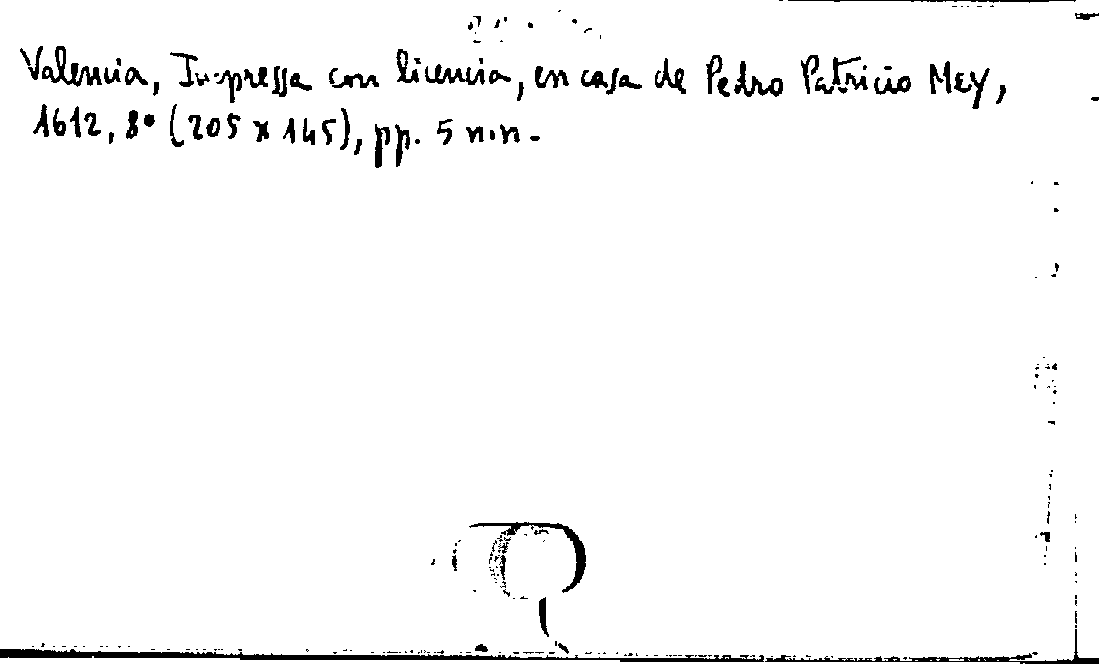 Valencia, Impressa con licencia, en casa de Pedro Patricio Mey,
1612, 8° (205 x 145), pp. 5 n.n.